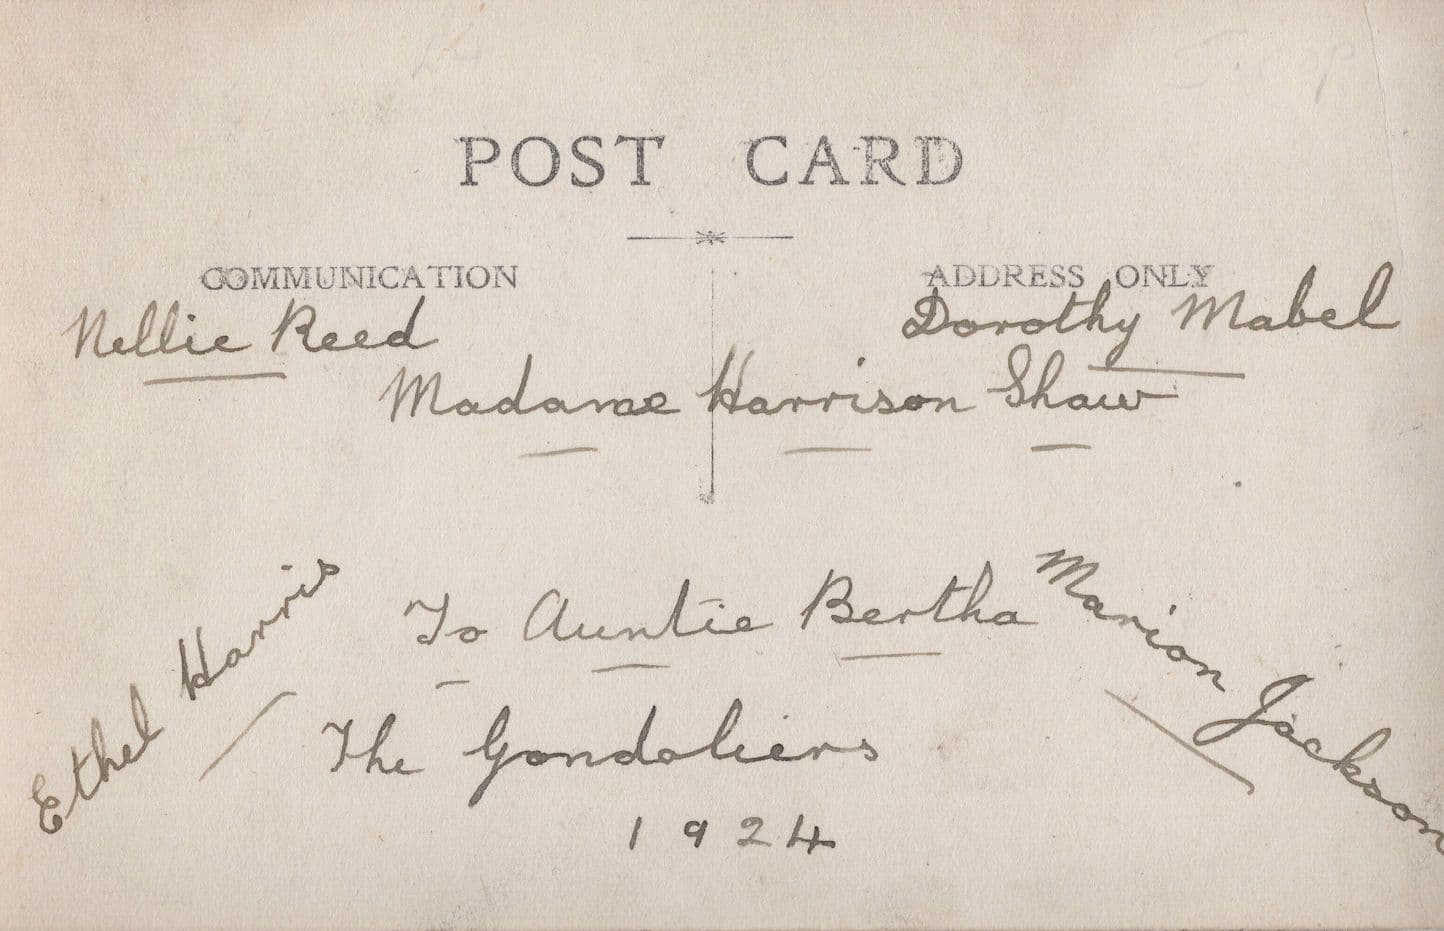 POST CARD
COMMUNICATION
ADDRESS ONLY
Nellie Reed
Dorothy Mabel
Madame Harrison Shaw
Ethel Harris
To Auntie Bertha
Marion Jackson
The Gondoliers
1924